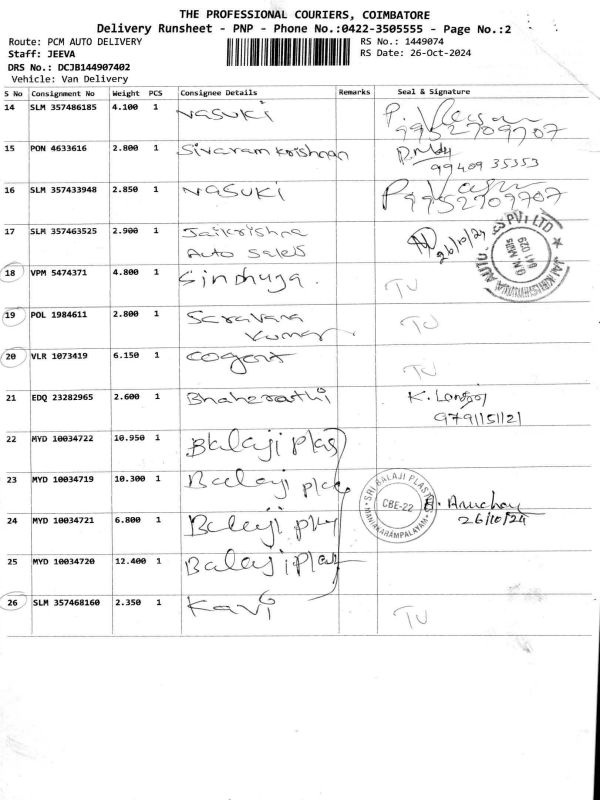 THE PROFESSIONAL COURIERS, COIMBATORE
Delivery Runsheet - PNP - Phone No.:0422-3505555 - Page No.:2
Route: PCM AUTO DELIVERY
RS No.: 1449074
Staff: JEEVA
RS Date: 26-Oct-2024
DRS No.: DCJB144907402
Vehicle: Van Delivery
S No Consignment No Weight PCS Consignee Details Remarks Seal & Signature
14 SLM 357486185 4.100 1 Nasuki
9952709707
15 PON 4633616 2.800 1 Sivaram Krishnan
99409 35353
16 SLM 357433948 2.850 1 Nasuki
9952709707
17 SLM 357463525 2.900 1 Jaikrishna
Auto Sales
26/10/24
18 VPM 5474371 4.800 1 Sindhuja. TU
19 POL 1984611 2.800 1 Saravana TU
Kumar
20 VLR 1073419 6.150 1 Cogent TU
21 EDQ 23282965 2.600 1 Bhaherathi K.
9791151121
22 MYD 10034722 10.950 1 Balaji plas
23 MYD 10034719 10.300 1 Balaji plas
SRI BALAJI PLAST
CBE-22
MANIAKARAMPALAYAM
26/10/24
24 MYD 10034721 6.800 1 Balaji plas
25 MYD 10034720 12.400 1 Balaji plas
26 SLM 357468160 2.350 1 Kavi TU